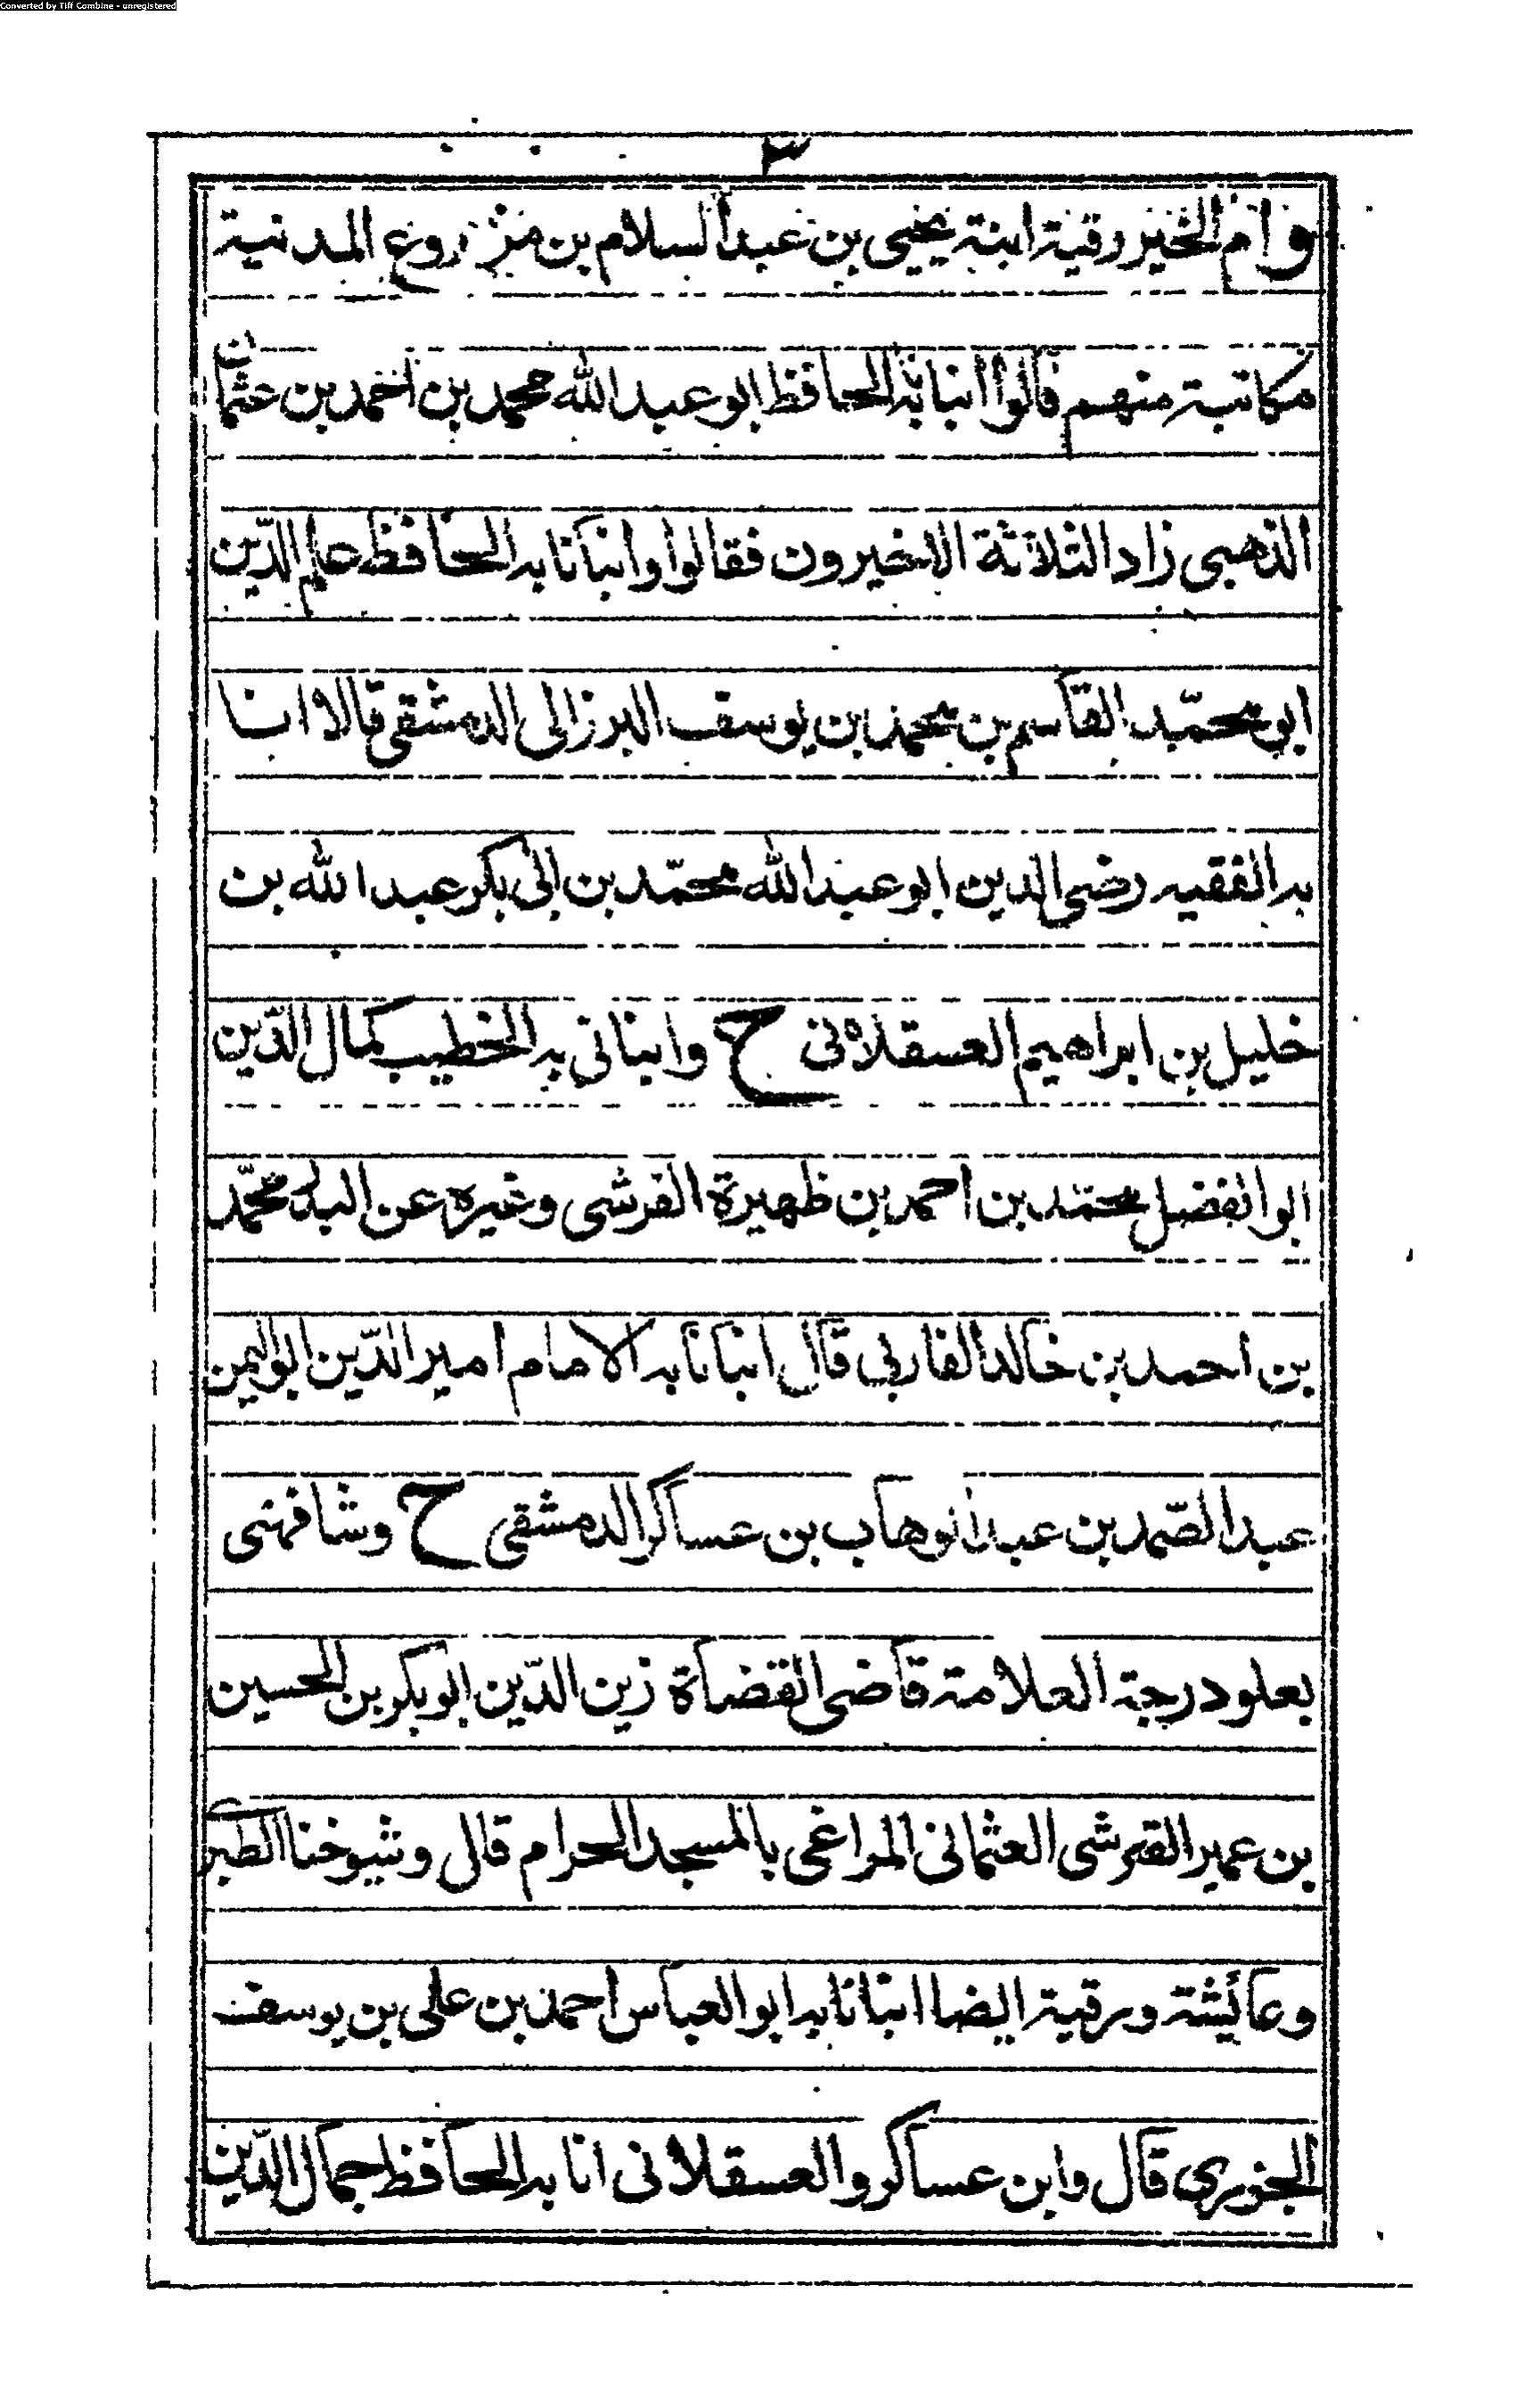 Converted by Tiff Combine - unregistered
٣
وام الخير رقية ابنة يحيى بن عبد السلام بن مزروع المدنية
مكاتبة منهم قالوا انبانا به الحافظ ابو عبد الله محمد بن احمد بن عثمان
الذهبي زاد الثلاثة الاخيرون فقالوا وانبانا به الحافظ علم الدّين
ابو محمّد القاسم بن محمد بن يوسف البرزالى الدمشقى قالا انبا
به الفقيه رضي الدين ابو عبد الله محمّد بن ابى بكر عبد الله بن
خليل بن ابراهيم العسقلانى ح وانبانى به الخطيب كمال الدّين
ابو الفضل محمّد بن احمد بن ظهيرة القرشى وغيره عن البدر محمّد
بن احمد بن خالد الفارقي قال انبانا به الامام امير الدّين ابو اليمن
عبد الصّمد بن عبد الوهاب بن عساكر الدمشقى ح وشافهنى
بعلو درجة العلامة قاضى القضاة زين الدّين ابو بكر بن الحسين
بن عمر القرشى العثمانى المراغى بالمسجد الحرام قال وشيوخنا الطبرى
وعائيشة ورقية ايضا انبانا به ابو العباس احمد بن على بن يوسف
الجزري قال وابن عساكر والعسقلانى انا به الحافظ جمال الدّين